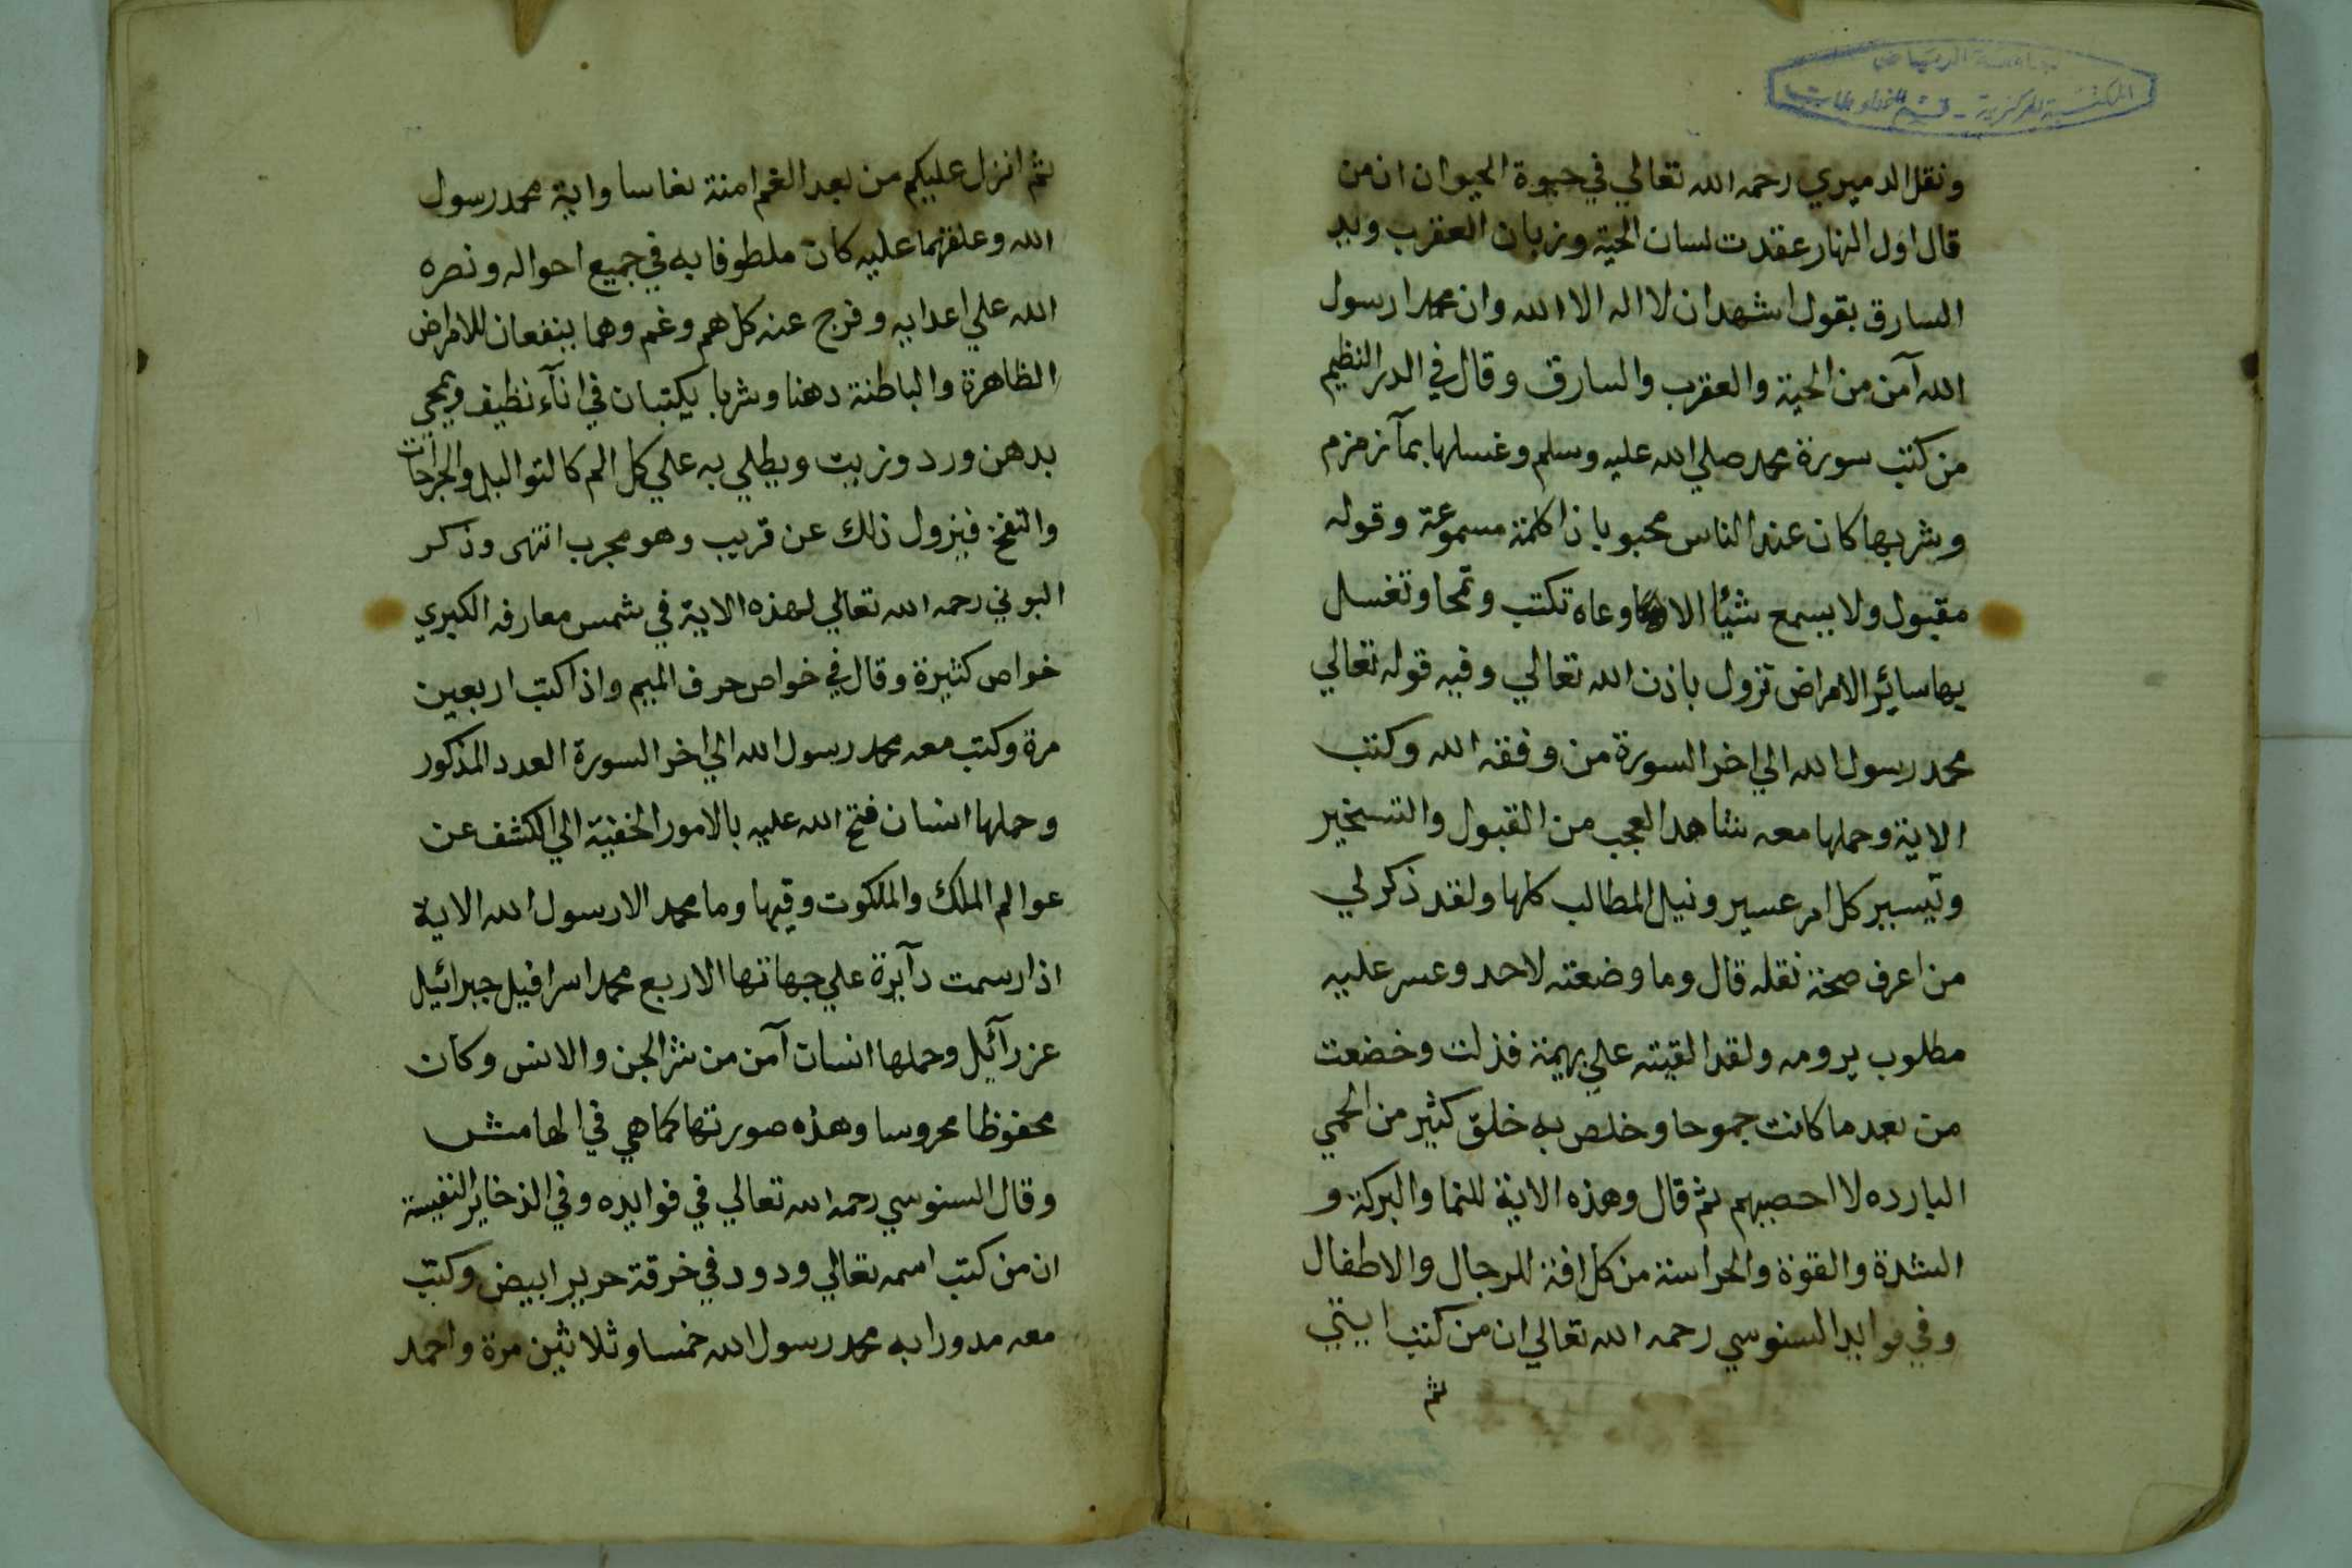 جامعة الرياض
المكتبة المركزية - قسم المخطوطات
ونقل الدميري رحمه الله تعالي في حيوة الحيوان ان من
قال اول النهار عقدت لسان الحية وزبان العقرب ويد
السارق بقول اشهد ان لا اله الا الله وان محمدا رسول
الله آمن من الحية والعقرب والسارق وقال في الدر النظيم
من كتب سورة محمد صلي الله عليه وسلم وغسلها بمآ زمزم
وشربها كان عند الناس محبوبا ذا كلمة مسموعة وقوله
مقبول ولا يسمع شيئا الا وعاه تكتب وتمحا وتغسل
بها سائر الامراض تزول باذن الله تعالي وفيه قوله تعالي
محمد رسول الله الي اخر السورة من وفقه الله وكتب
الاية وحملها معه شاهد العجب من القبول والتسخير
وتيسير كل امر عسير ونيل المطالب كلها ولقد ذكر لي
من اعرف صحة نقله قال وما وضعته لاحد وعسر عليه
مطلوب يرومه ولقد القيته علي بهيمة فذلت وخضعت
من بعد ما كانت جموحا وخلص به خلق كثير من الحمي
البارده لا احصيهم ثم قال وهذه الاية للنما والبركة و
الشدة والقوة والحراسة من كل افة للرجال والاطفال
وفي فوايد السنوسي رحمه الله تعالي ان من كتب ايتي
ثم
ثم انزل عليكم من بعد الغم امنة نعاسا واية محمد رسول
الله وعلقهما عليه كان ملطوفا به في جميع احواله ونصره
الله علي اعدايه وفرج عنه كل هم وغم وهما ينفعان للامراض
الظاهرة والباطنة دهنا وشربا يكتبان في انآء نظيف ويمحي
بدهن ورد وزيت ويطلي به علي كل الم كالتواليل والجراحات
والنفخ فيزول ذلك عن قريب وهو مجرب انتهى وذكر
البوني رحمه الله تعالي لهذه الاية في شمس معارفه الكبري
خواص كثيرة وقال في خواص حرف الميم واذا كتب اربعين
مرة وكتب معه محمد رسول الله الي اخر السورة العدد المذكور
وحملها انسان فتح الله عليه بالامور الخفية الي الكشف عن
عوالم الملك والملكوت وقيها وما محمد الا رسول الله الاية
اذا رسمت دآيرة علي جهاتها الاربع محمد اسرافيل جبرائيل
عزرآئيل وحملها انسان آمن من شر الجن والانس وكان
محفوظا محروسا وهذه صورتها كما هي في الهامش
وقال السنوسي رحمه الله تعالي في فوايده وفي الذخاير النفيسة
ان من كتب اسمه تعالي ودود في خرقة حرير ابيض وكتب
معه مدورا به محمد رسول الله خمسا وثلاثين مرة واحمد